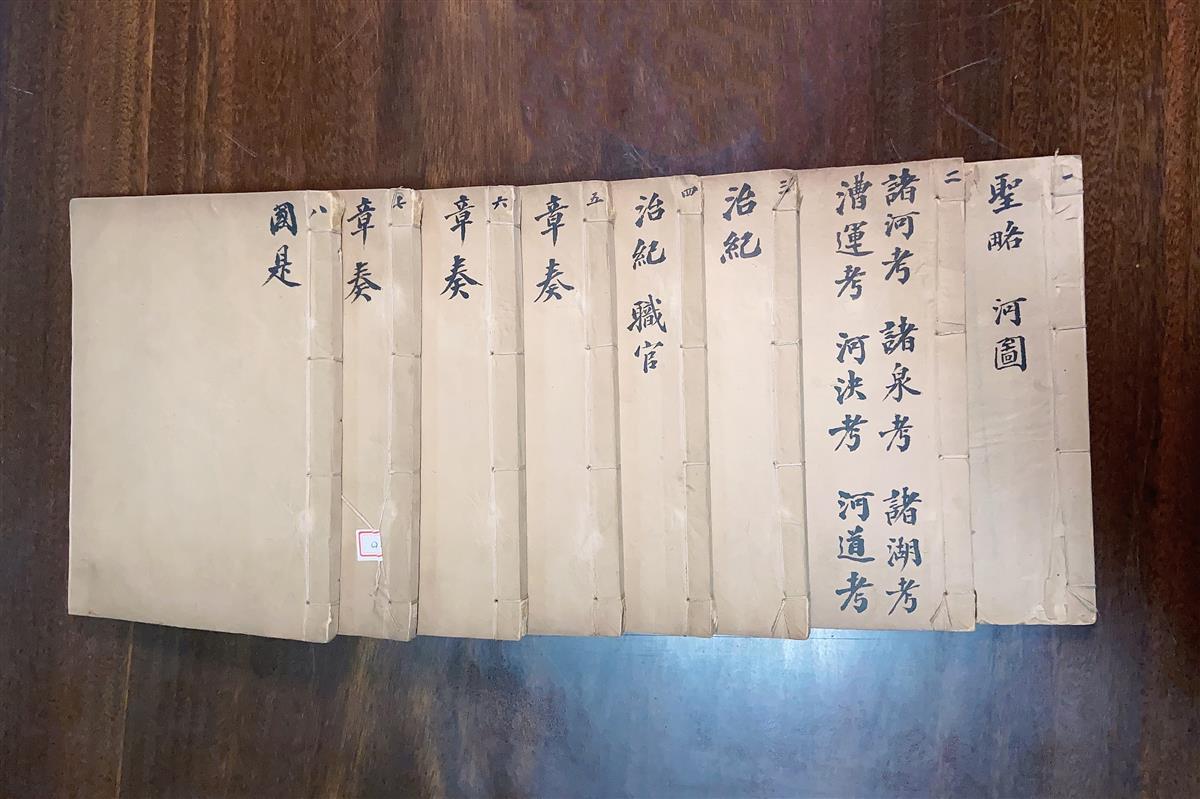 一
聖略 河圖
二
諸河考 諸泉考 諸湖考
漕運考 河決考 河道考
三
治紀
四
治紀 職官
五
章奏
六
章奏
七
章奏
八
國是